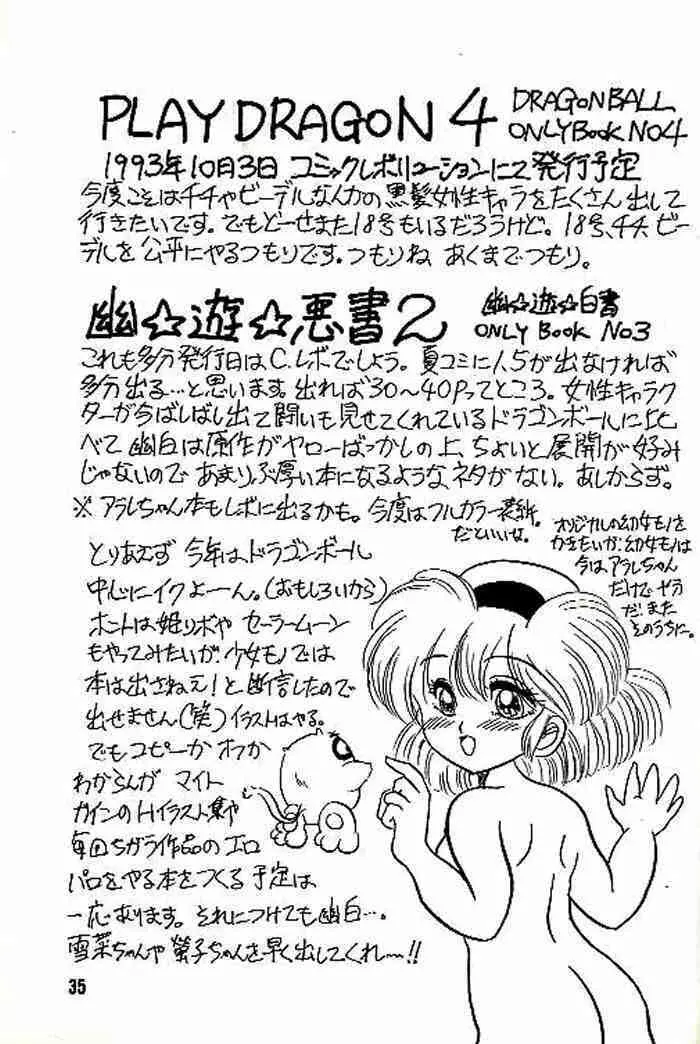 PLAY DRAGON 4
DRAGON BALL
ONLY Book NO4
1993年10月3日 コミックレボリューションにて発行予定
今度こそはチチやビーデルなんかの黒髪女性キャラをたくさん出して
行きたいです。でもどーせまた18号もいるだろうけど。18号、チチ、ビー
デルを公平にやるつもりです。つもりね あくまでつもり。
幽☆遊☆悪書2
幽☆遊☆白書
ONLY Book No3
これも多分発行日はC.レボでしょう。夏コミに1.5が出なければ
多分出る…と思います。出れば30〜40Pってところ。女性キャラク
ターが今ばしばし出て闘いも見せてくれているドラゴンボールに比
べて 幽白は原作がヤローばっかしの上、ちょいと展開が好み
じゃないので あまりぶ厚い本になるようなネタがない。あしからず。
※アラレちゃん本もレボに出るかも。今度はフルカラー表紙。
だといいな。
オリジナルの幼女モノを
かきもいいが 幼女モノは
今は、アラレちゃん
だけで
だ！また
そのうちに。
とりあえず 今年は、ドラゴンボール
中心にイクよーん。(おもしろいから)
ホントは姫リボや セーラームーン
もやってみたいが、少女モノでは
本は出さねえ！と断言したので
出せません(笑)イラストはやる。
でもコピーか オフか
わからんが マイト
ガインのHイラスト集や
毎回ちがう作品のエロ
パロをやる本をつくる予定は
一応あります。それにつけても幽白…。
雪菜ちゃんや 螢子ちゃんを早く出してくれ〜!!
35